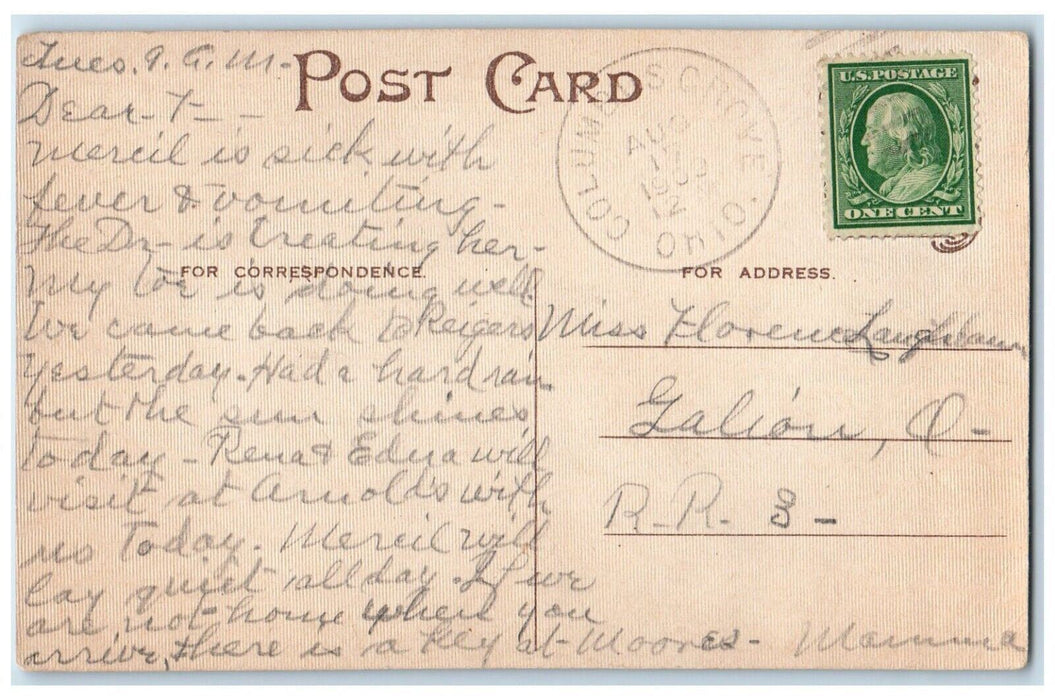 Tues. 9. A. M.
POST CARD
COLUMBUS GROVE, OHIO.
AUG
17
1909
12
U.S. POSTAGE
ONE CENT
Dear F—
Mercil is sick with
fever & vomiting -
The Dr - is treating her -
FOR CORRESPONDENCE.
FOR ADDRESS.
My toe is doing well.
We came back to Reigers
Yesterday. Had a hard rain
but the sun shines
today - Rena & Edna will
visit at Arnolds with
us today. Mercil will
lay quiet all day. If we
are not home when you
arrive, there is a key at Moores - Mamma
Miss Florence Laughbaum
Galion, O -
R. R. 3 -